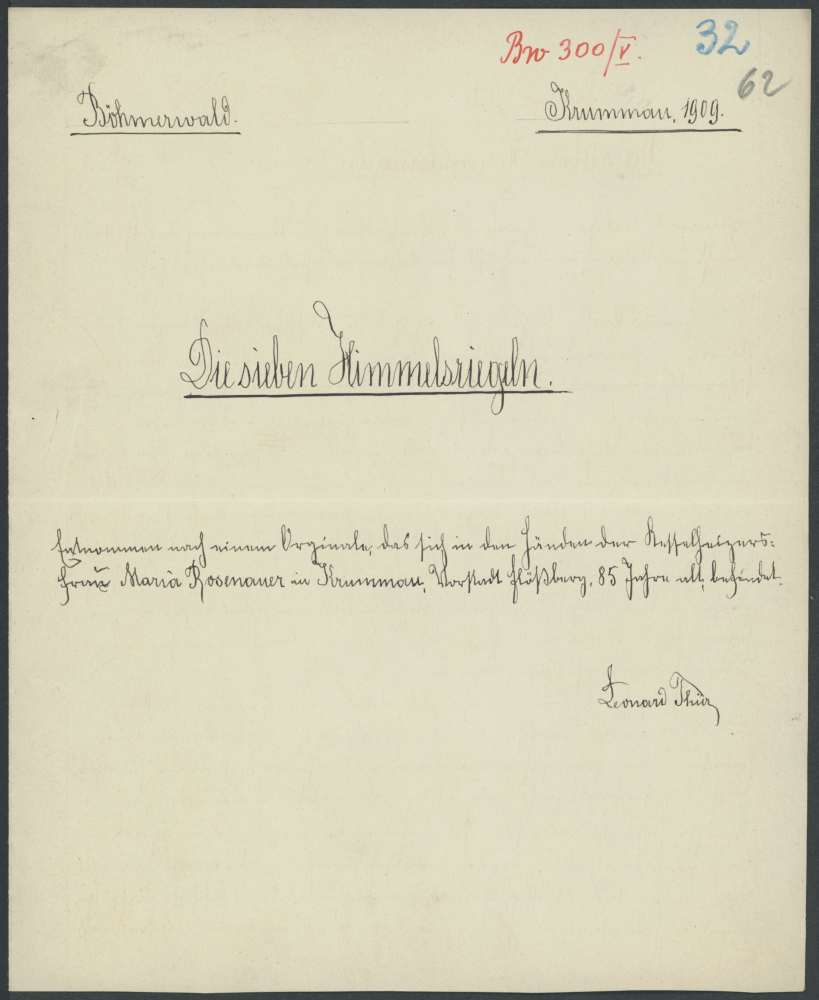 Bw 300/V.
32
62
Böhmerwald.
Krummau, 1909.
Die sieben Himmelsriegeln.
Entnommen nach einem Orginale, das sich in den Händen der Kesselheizers-
frau Maria Rosenauer in Krummau, Vorstadt Flößberg, 85 Jahre alt, befindet.
Leonard Thür